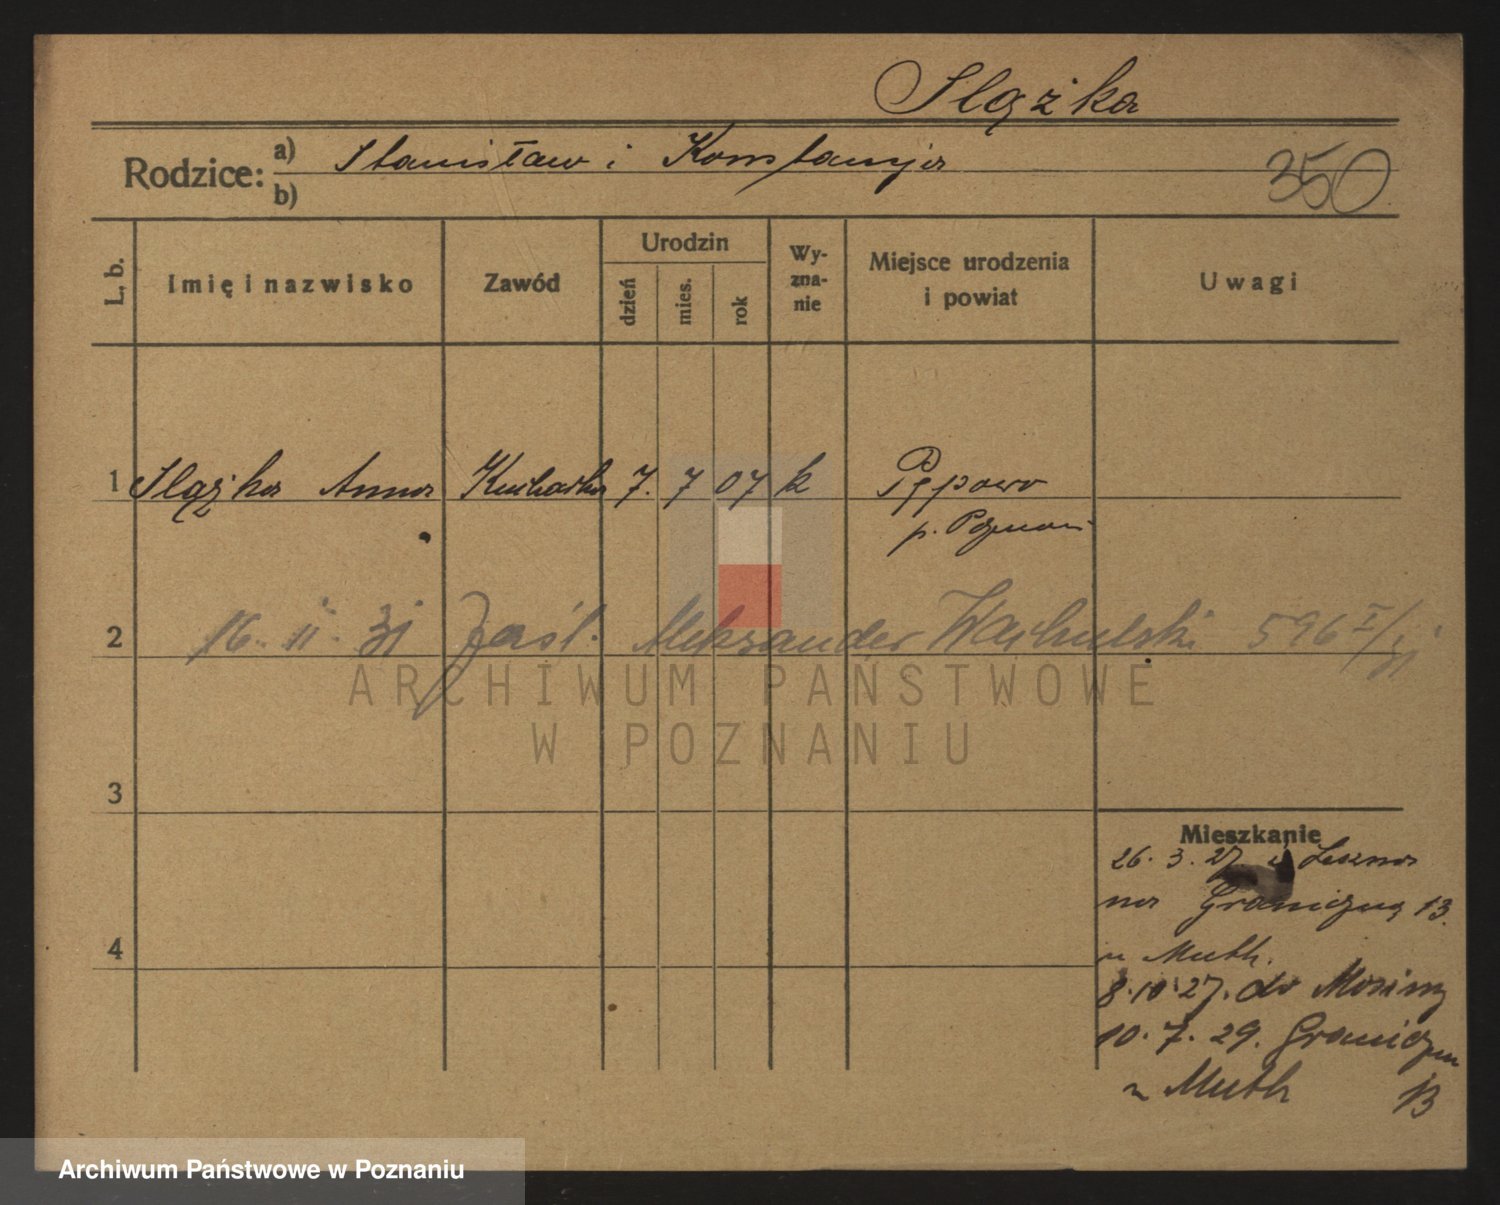 Slązka
Rodzice: a) Stanisław i Konstancja
b)
350
L. b.
Imię i nazwisko
Zawód
Urodzin
dzień
mies.
rok
Wy-
zna-
nie
Miejsce urodzenia
i powiat
Uwagi
1 Slązka Anna Kucharka 7. 7 07 k
p. Poznań
2 16. 11. 31 zaśl. Aleksander 596 I/31
3
4
Mieszkanie
26. 3. 27 z Leszna
na Graniczną 13.
u Muth.
8.10.27. do
10. 7. 29. Graniczna
13
u Muth
ARCHIWUM PAŃSTWOWE
W POZNANIU
Archiwum Państwowe w Poznaniu